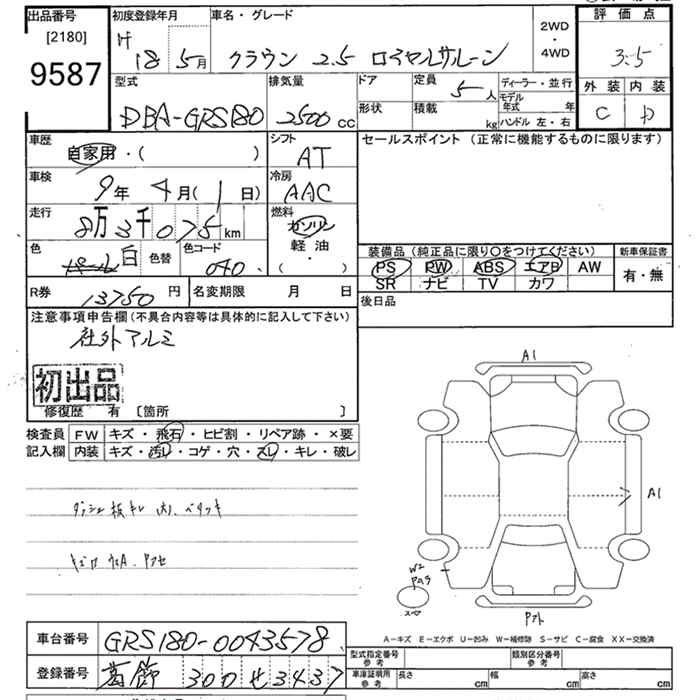 出品番号
[2180]
9587
初度登録年月
H 18 5月
車名・グレード
クラウン 2.5 ロイヤルサルーン
2WD
・
4WD
評価点
3.5
外装 内装
C D
型式
DBA-GRS180
排気量
2500 cc
ドア
形状
定員
5人
積載
kg
ディーラー・並行
モデル年式 年
ハンドル 左・右
車歴
自家用・( )
シフト
AT
セールスポイント (正常に機能するものに限ります)
車検
9年 4月( 1日)
冷房
AAC
走行
8万3千075km
燃料
ガソリン
軽油
・
( )
色
パール白
色替
色コード
040
装備品 (純正品に限り〇をつけてください)
新車保証書
PS PW ABS エアB AW
有・無
SR ナビ TV カワ
R券
13750円
名変期限 月 日
後日品
注意事項申告欄 (不具合内容等は具体的に記入して下さい)
社外アルミ
初出品
修復歴 有 〔箇所 〕
検査員 FW キズ・飛石・ヒビ割・リペア跡・×要
記入欄 内装 キズ・汚レ・コゲ・穴・スレ・キレ・破レ
A1
A1
W2
スペア
A-キズ E-エクボ U-凹み W-補修跡 S-サビ C-腐食 XX-交換済
車台番号
GRS180-0043578
登録番号
葛飾 300 せ 3437
型式指定番号
参考
類別区分番号
参考
車庫証明用
参考
長さ cm
幅 cm
高さ cm